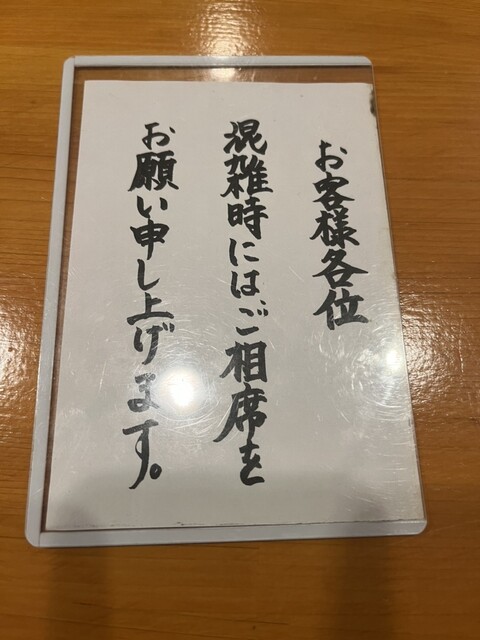 お客様各位
混雑時には、ご相席を
お願い申し上げます。